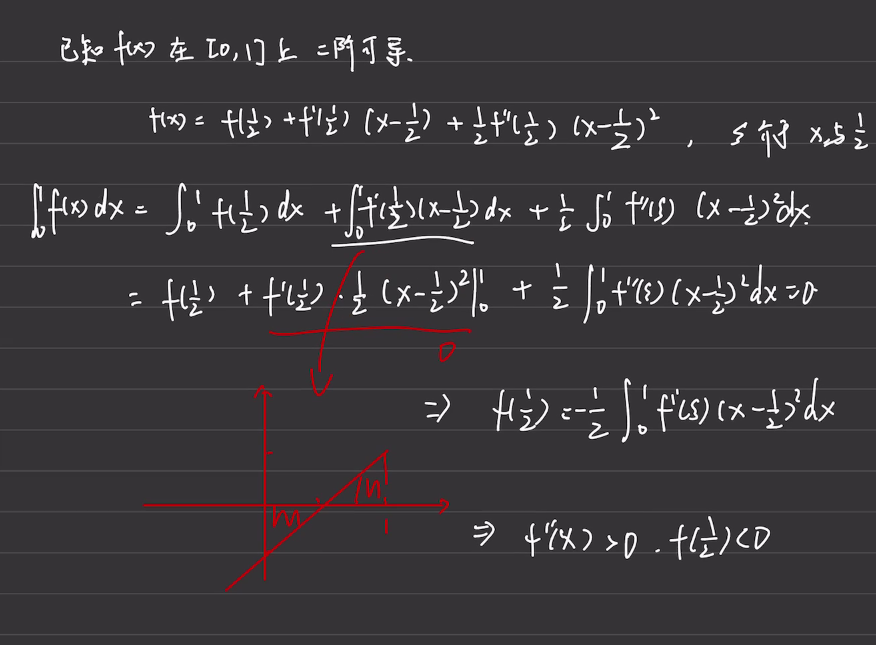 已知 f(x) 在 [0,1] 上 二阶可导.
f(x) = f(1/2) + f'(1/2) (x-1/2) + 1/2 f''(1/2) (x-1/2)², ξ 介于 x 与 1/2
∫₀¹ f(x) dx = ∫₀¹ f(1/2) dx + ∫₀¹ f'(1/2)(x-1/2) dx + 1/2 ∫₀¹ f''(ξ) (x-1/2)² dx.
= f(1/2) + f'(1/2) · 1/2 (x-1/2)² |₀¹ + 1/2 ∫₀¹ f''(ξ) (x-1/2)² dx = 0
0
⇒ f(1/2) = -1/2 ∫₀¹ f''(ξ) (x-1/2)² dx
⇒ f''(x) > 0 . f(1/2) < 0